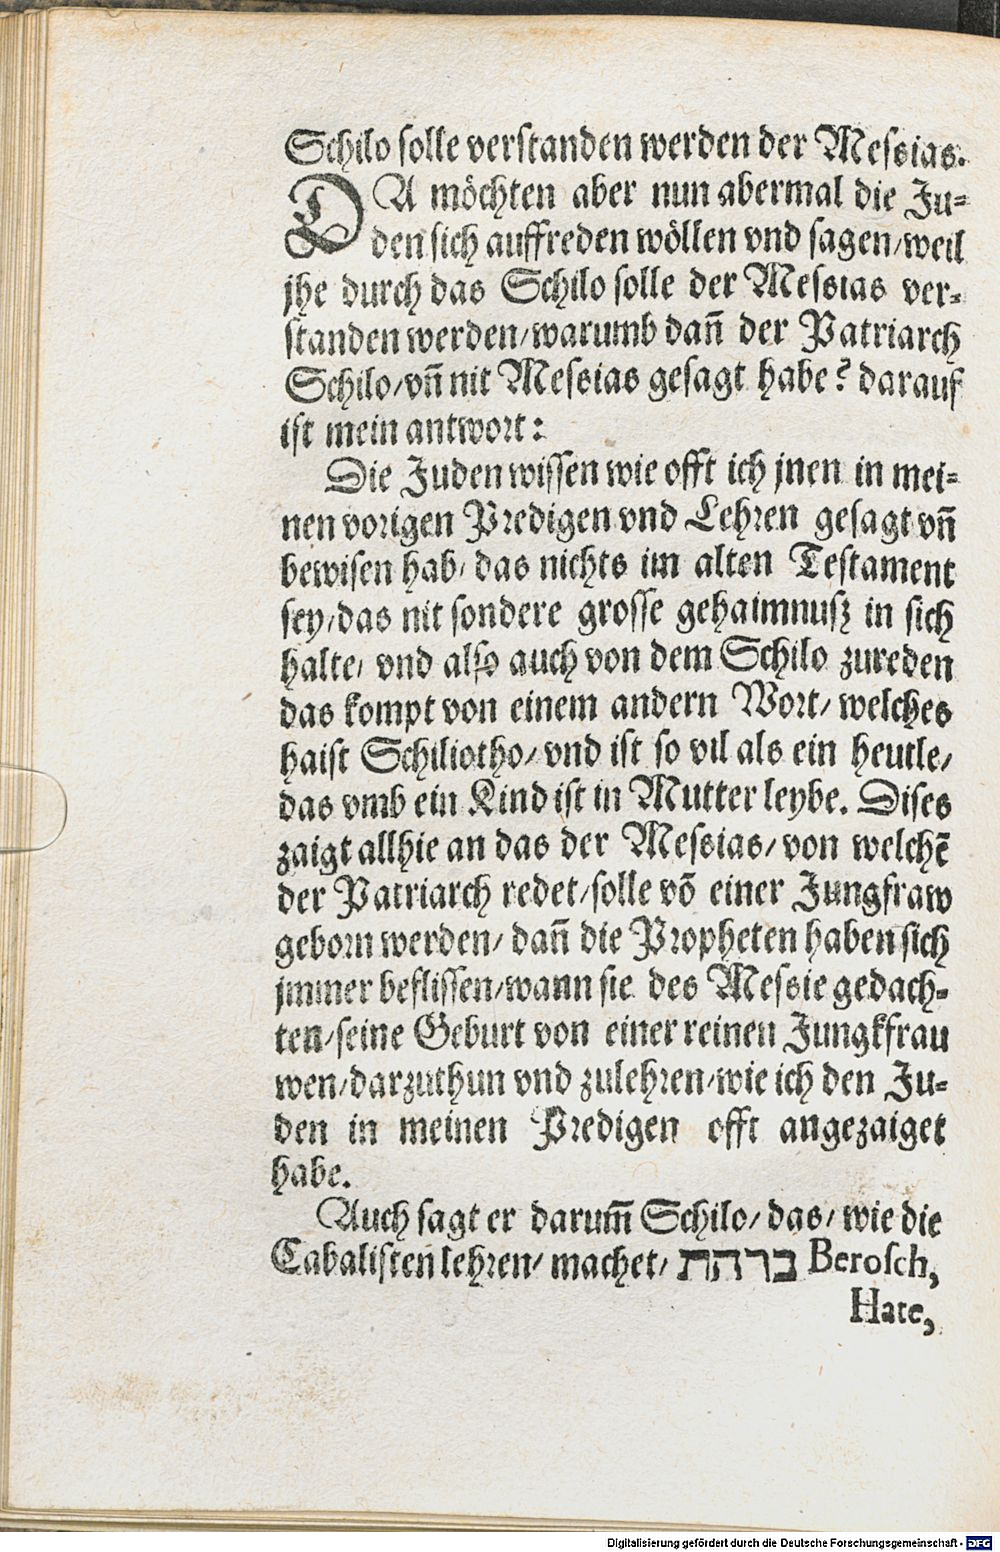 Schilo solle verstanden werden der Messias.
DA möchten aber nun abermal die Ju⸗
den sich auffreden wöllen vnd sagen/weil
jhe durch das Schilo solle der Messias ver⸗
standen werden/warumb dañ der Patriarch
Schilo/vñ nit Messias gesagt habe? darauf
ist mein antwort:
Die Juden wissen wie offt ich jnen in mei⸗
nen vorigen Predigen vnd Lehren gesagt vñ
bewisen hab/ das nichts im alten Testament
sey/das nit sondere grosse gehaimnusz in sich
halte/ vnd also auch von dem Schilo zureden
das kompt von einem andern Wort/ welches
haist Schiliotho/ vnd ist so vil als ein heutle/
das vmb ein Kind ist in Mutter leybe. Dises
zaigt allhie an das der Messias/ von welchẽ
der Patriarch redet/solle võ einer Jungfraw
geborn werden/ dañ die Propheten haben sich
jmmer beflissen/wann sie des Messie gedach⸗
ten/seine Geburt von einer reinen Jungkfrau
wen/darzuthun vnd zulehren/wie ich den Ju⸗
den in meinen Predigen offt angezaiget
habe.
Auch sagt er darum̃ Schilo/ das/ wie die
Cabalisten lehren/ machet/ ברהת Berosch,
Hate,
Digitalisierung gefördert durch die Deutsche Forschungsgemeinschaft - DFG